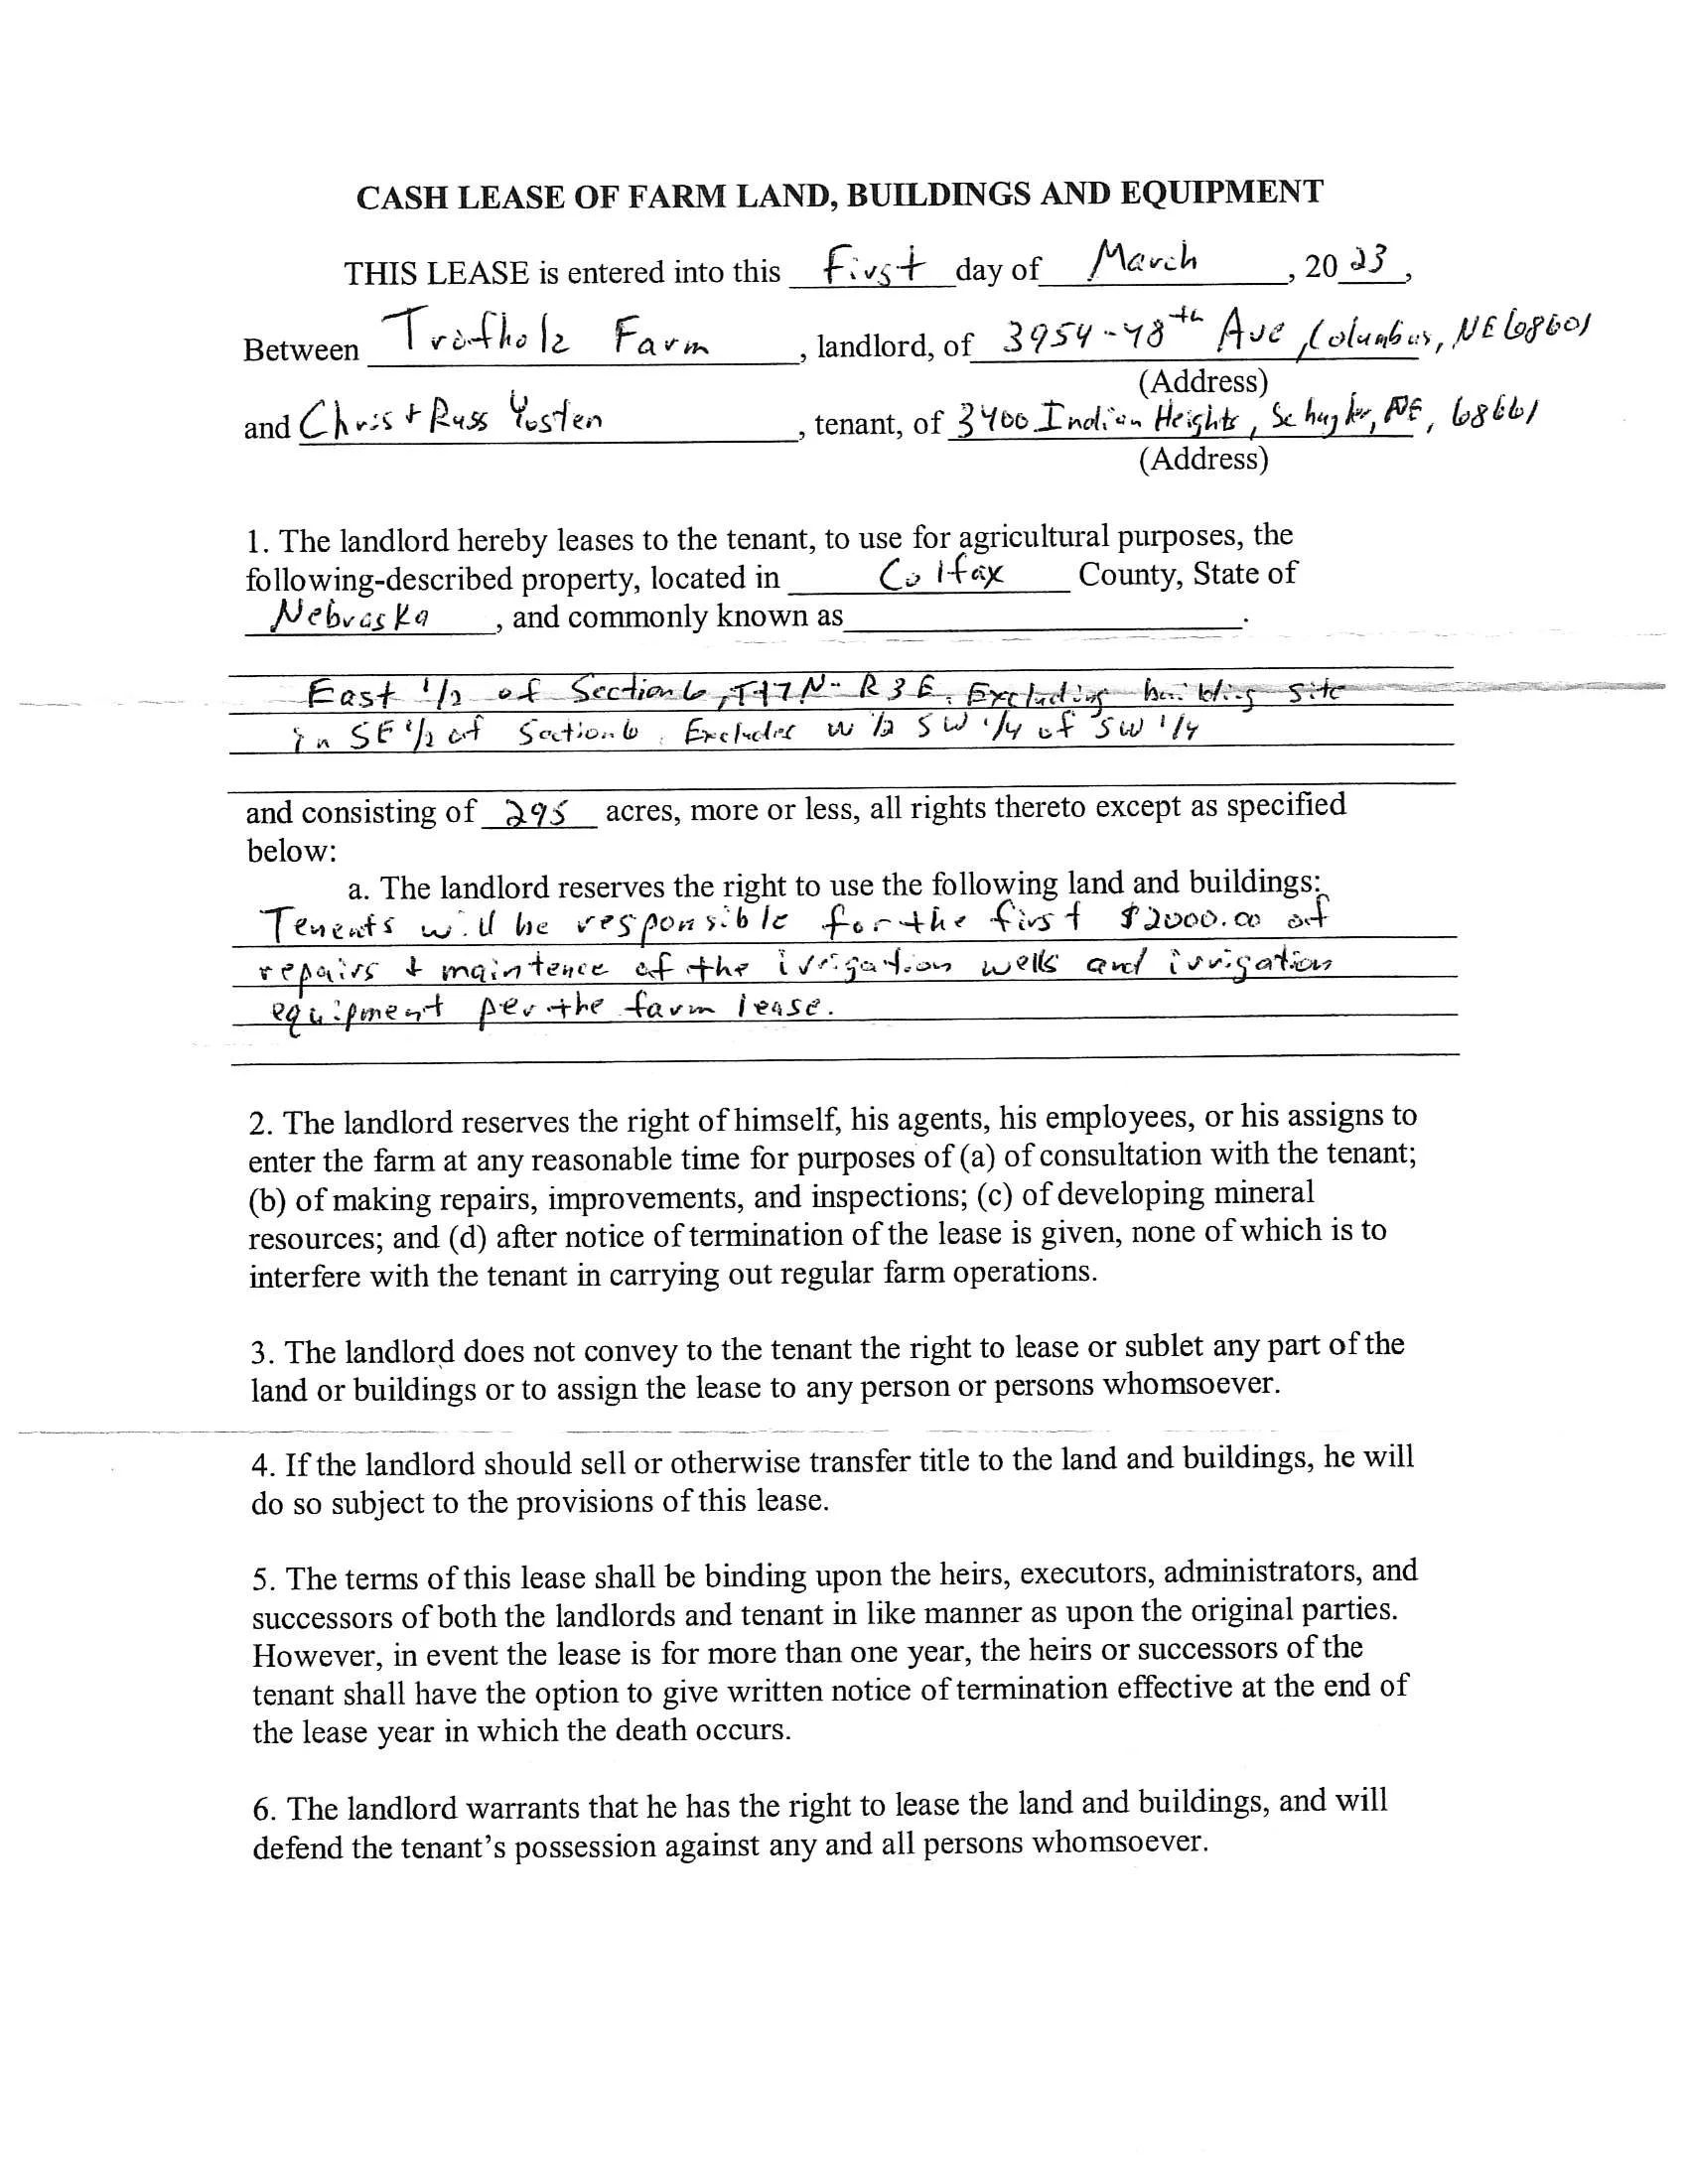 CASH LEASE OF FARM LAND, BUILDINGS AND EQUIPMENT
THIS LEASE is entered into this First day of March, 2023,
Between Trofholz Farm, landlord, of 3954-48th Ave, Columbus, NE 68601
(Address)
and Chris + Russ Yosten, tenant, of 3400 Indian Heights, Schuyler, NE, 68661
(Address)
1. The landlord hereby leases to the tenant, to use for agricultural purposes, the
following-described property, located in Colfax County, State of
Nebraska, and commonly known as.
East 1/2 of Section 6, T17N- R3E. Excluding building site
in SE 1/2 of Section 6. Excludes W 1/2 SW 1/4 of SW 1/4
and consisting of 295 acres, more or less, all rights thereto except as specified
below:
a. The landlord reserves the right to use the following land and buildings:
Tenents will be responsible for the first $2000.00 of
repairs + maintence of the irrigation wells and irrigation
equipment per the farm lease.
2. The landlord reserves the right of himself, his agents, his employees, or his assigns to
enter the farm at any reasonable time for purposes of (a) of consultation with the tenant;
(b) of making repairs, improvements, and inspections; (c) of developing mineral
resources; and (d) after notice of termination of the lease is given, none of which is to
interfere with the tenant in carrying out regular farm operations.
3. The landlord does not convey to the tenant the right to lease or sublet any part of the
land or buildings or to assign the lease to any person or persons whomsoever.
4. If the landlord should sell or otherwise transfer title to the land and buildings, he will
do so subject to the provisions of this lease.
5. The terms of this lease shall be binding upon the heirs, executors, administrators, and
successors of both the landlords and tenant in like manner as upon the original parties.
However, in event the lease is for more than one year, the heirs or successors of the
tenant shall have the option to give written notice of termination effective at the end of
the lease year in which the death occurs.
6. The landlord warrants that he has the right to lease the land and buildings, and will
defend the tenant's possession against any and all persons whomsoever.